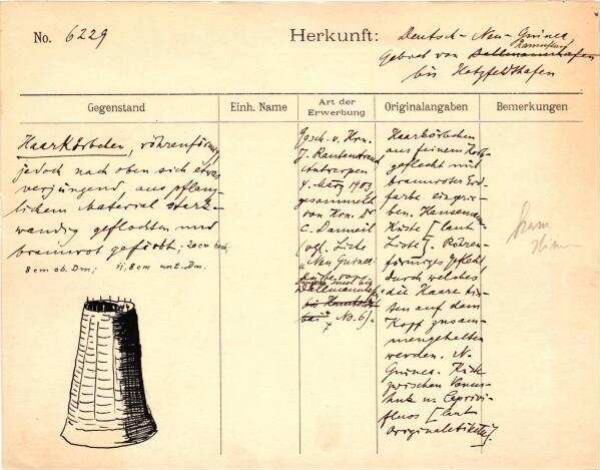 No. 6229
Herkunft: Deutsch-Neu-Guinea
Gebiet von Dallmannhafen
bis Hatzfeldthafen
Gegenstand
Einh. Name
Art der Erwerbung
Originalangaben
Bemerkungen
Haarkörbchen, röhrenförmig,
jedoch nach oben sich etwas
verjüngend, aus pflanz-
lichem Material stark-
wandig geflochten und
braunrot gefärbt; 20cm hoch,
8cm ob. Dm; 11,8cm unt. Dm.
Gesch. v. Hrn.
J. Rautenstrauch
Antwerpen
4. März 1903
gesammelt
von Hrn. Dr
C. Danneil
(vgl. Liste
"Neu Guinea
No. 6).
Haarkörbchen
aus feinem
geflecht mit
braunroter Erd-
farbe eingerie-
ben. Hansemann
Küste [laut
Liste]. Röhren-
förmiges Geflecht,
durch welches
die Haare hin-
ten auf dem
Kopf zusam-
mengehalten
werden. N.
Guinea. Küste
zwischen Venus-
huk u. Caprivi-
fluss [laut
Originaletikette].